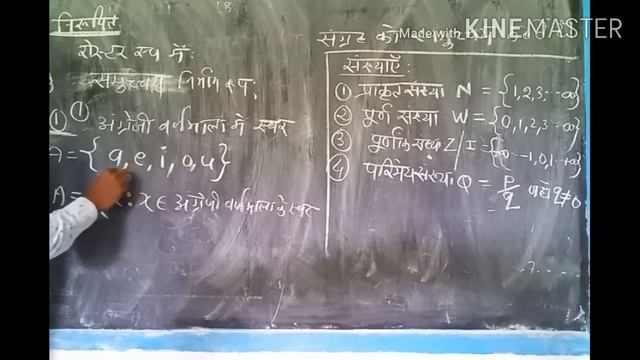 निरूपित
रोस्टर रूप में:
समुच्चय निर्माण रूप:
① अंग्रेजी वर्णमाला में स्वर
A = { a, e, i, o, u }
A = : x ∈ अंग्रेजी वर्णमाला के स्वर
संग्रह को
Made with
KINEMASTER
संख्याएँ:
① प्राकृत संख्या N = {1, 2, 3, --∞}
② पूर्ण संख्या W = {0, 1, 2, 3 --∞}
③ पूर्णांक संख्या Z / I = {-∞ -- -1, 0, 1 -- +∞}
④ परिमेय संख्या Q = p/q जहाँ q ≠ 0